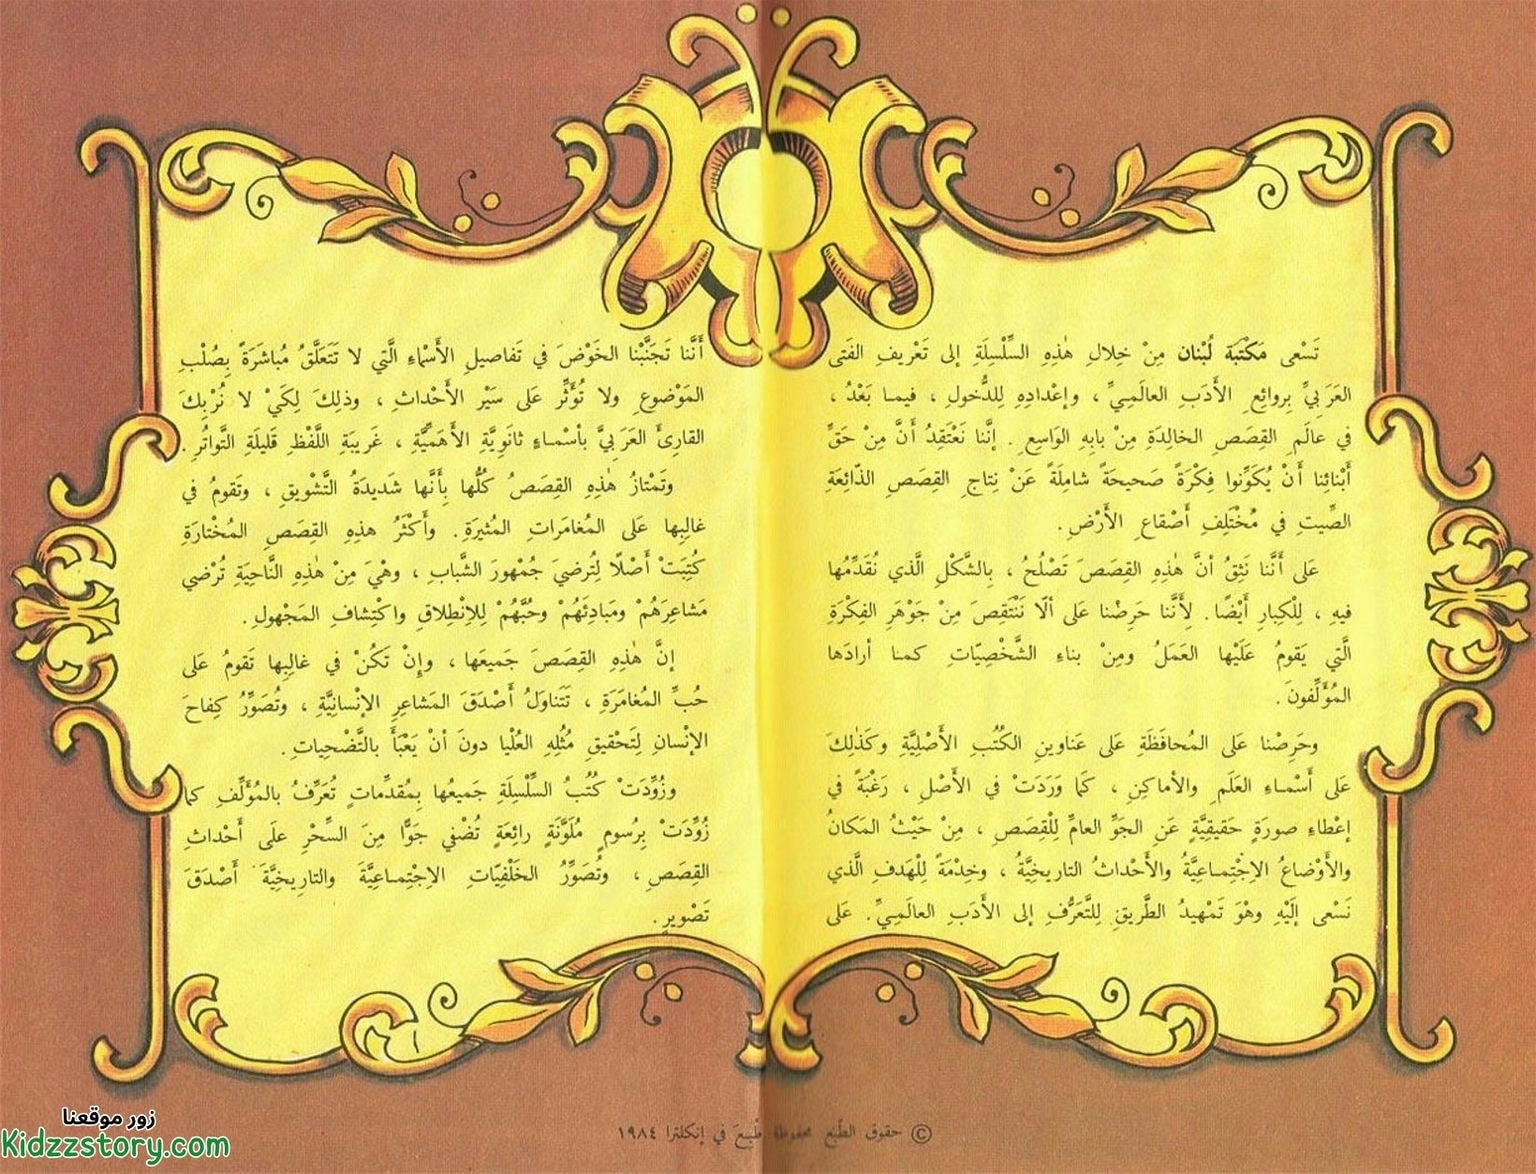 تَسْعى مَكْتَبَة لُبْنان مِنْ خِلالِ هٰذِهِ السِّلْسِلَةِ إلى تَعْريفِ الفَتى
العَرَبِيِّ بِروائِعِ الأَدَبِ العالَمِيِّ ، وإعْدادِهِ لِلدُّخولِ ، فيمـا بَعْدُ ،
في عالَمِ القِصَصِ الخالِدَةِ مِنْ بابِهِ الوَاسِعِ . إنَّنا نَعْتَقِدُ أَنَّ مِنْ حَقِّ
أَبْنائِنا أَنْ يُكَوِّنوا فِكْرَةً صَحيحَةً شامِلَةً عَنْ نِتاجِ القِصَصِ الذّائِعَةِ
الصِّيتِ في مُخْتَلِفِ أَصْقاعِ الأَرْضِ .
عَلى أَنَّنا نَثِقُ أنَّ هٰذِهِ القِصَصَ تَصْلُحُ ، بِالشَّكْلِ الَّذي نُقَدِّمُها
فيهِ ، لِلْكِبارِ أَيْضًا . لِأَنَّنا حَرِصْنا عَلى ألّا نَنْتَقِصَ مِنْ جَوْهَرِ الفِكْرَةِ
الَّتي يَقومُ عَلَيْها العَمَلُ ومِنْ بناءِ الشَّخْصِيّاتِ كمـا أرادَها
المُؤَلِّفونَ .
وحَرِصْنا عَلى المُحافَظَةِ عَلى عَناوينِ الكُتُبِ الأَصْلِيَّةِ وكَذٰلِكَ
عَلى أَسْمـاءِ العَلَمِ والأماكِنِ ، كَما وَرَدَتْ في الأَصْلِ ، رَغْبَةً في
إعْطاءِ صورَةٍ حَقيقِيَّةٍ عَنِ الجَوِّ العامِّ لِلْقِصَصِ ، مِنْ حَيْثُ المَكانُ
والأَوْضاعُ الاِجْتِمـاعِيَّةُ والأَحْداثُ التاريخِيَّةُ ، وخِدْمَةً لِلْهَدفِ الَّذي
نَسْعى إلَيْهِ وهْوَ تَمْهيدُ الطَّريقِ لِلتَّعَرُّفِ إلى الأَدَبِ العالَمِيِّ . عَلى
أَنَّنا تَجَنَّبْنا الخَوْضَ في تَفاصيلِ الأَسْماءِ الَّتي لا تَتَعَلَّقُ مُباشَرَةً بِصُلْبِ
المَوْضوعِ ولا تُؤَثِّرُ عَلى سَيْرِ الأَحْداثِ ، وذلِكَ لِكَيْ لا نُرْبِكَ
القارِئَ العَرَبِيَّ بأسْمـاءٍ ثانَوِيَّةِ الأَهَمِّيَّةِ ، غَريبَةِ اللَّفْظِ قَليلَةِ التَّواتُرِ .
وتَمْتازُ هٰذِهِ القِصَصُ كُلُّها بِأَنَّها شَديدَةُ التَّشْويقِ ، وتَقومُ في
غالِبِها عَلى المُغامَراتِ المُثيرَةِ . وأَكْثَرُ هذِهِ القِصَصِ المُخْتارَةِ
كُتِبَتْ أَصْلًا لِتُرضيَ جُمْهورَ الشَّبابِ ، وهْيَ مِنْ هٰذِهِ النّاحِيَةِ تُرْضي
مَشاعِرَهُمْ ومَبادِئَهُمْ وحُبَّهُمْ لِلاِنْطِلاقِ واكْتِشافِ المَجْهولِ .
إنَّ هٰذِهِ القِصَصَ جَميعَها ، وإنْ تَكُنْ في غالِبِها تَقومُ عَلى
حُبِّ المُغامَرَةِ ، تَتَناوَلُ أَصْدَقَ المَشاعِرِ الإنْسانِيَّةِ ، وتُصَوِّرُ كِفاحَ
الإنْسانِ لِتَحْقيقِ مُثُلِهِ العُلْيا دونَ أنْ يَعْبَأَ بالتَّضْحِياتِ .
وزُوِّدَتْ كُتُبُ السِّلْسِلَةِ جَميعُها بِمُقدِّماتٍ تُعَرِّفُ بالمُؤَلِّفِ كما
زُوِّدَتْ بِرُسومٍ مُلَوَّنَةٍ رائِعَةٍ تُضْفي جَوًّا مِنَ السِّحْرِ عَلَى أَحْداثِ
القِصَصِ ، وتُصَوِّرُ الخَلْفِيّاتِ الاِجْتِمـاعِيَّةَ والتاريخِيَّةَ أَصْدَقَ
تَصْويرٍ .
© حقوق الطَّبْع محفوظة طُبِعَ في إنكلترا ١٩٨٤
زور موقعنا
Kidzzstory.com